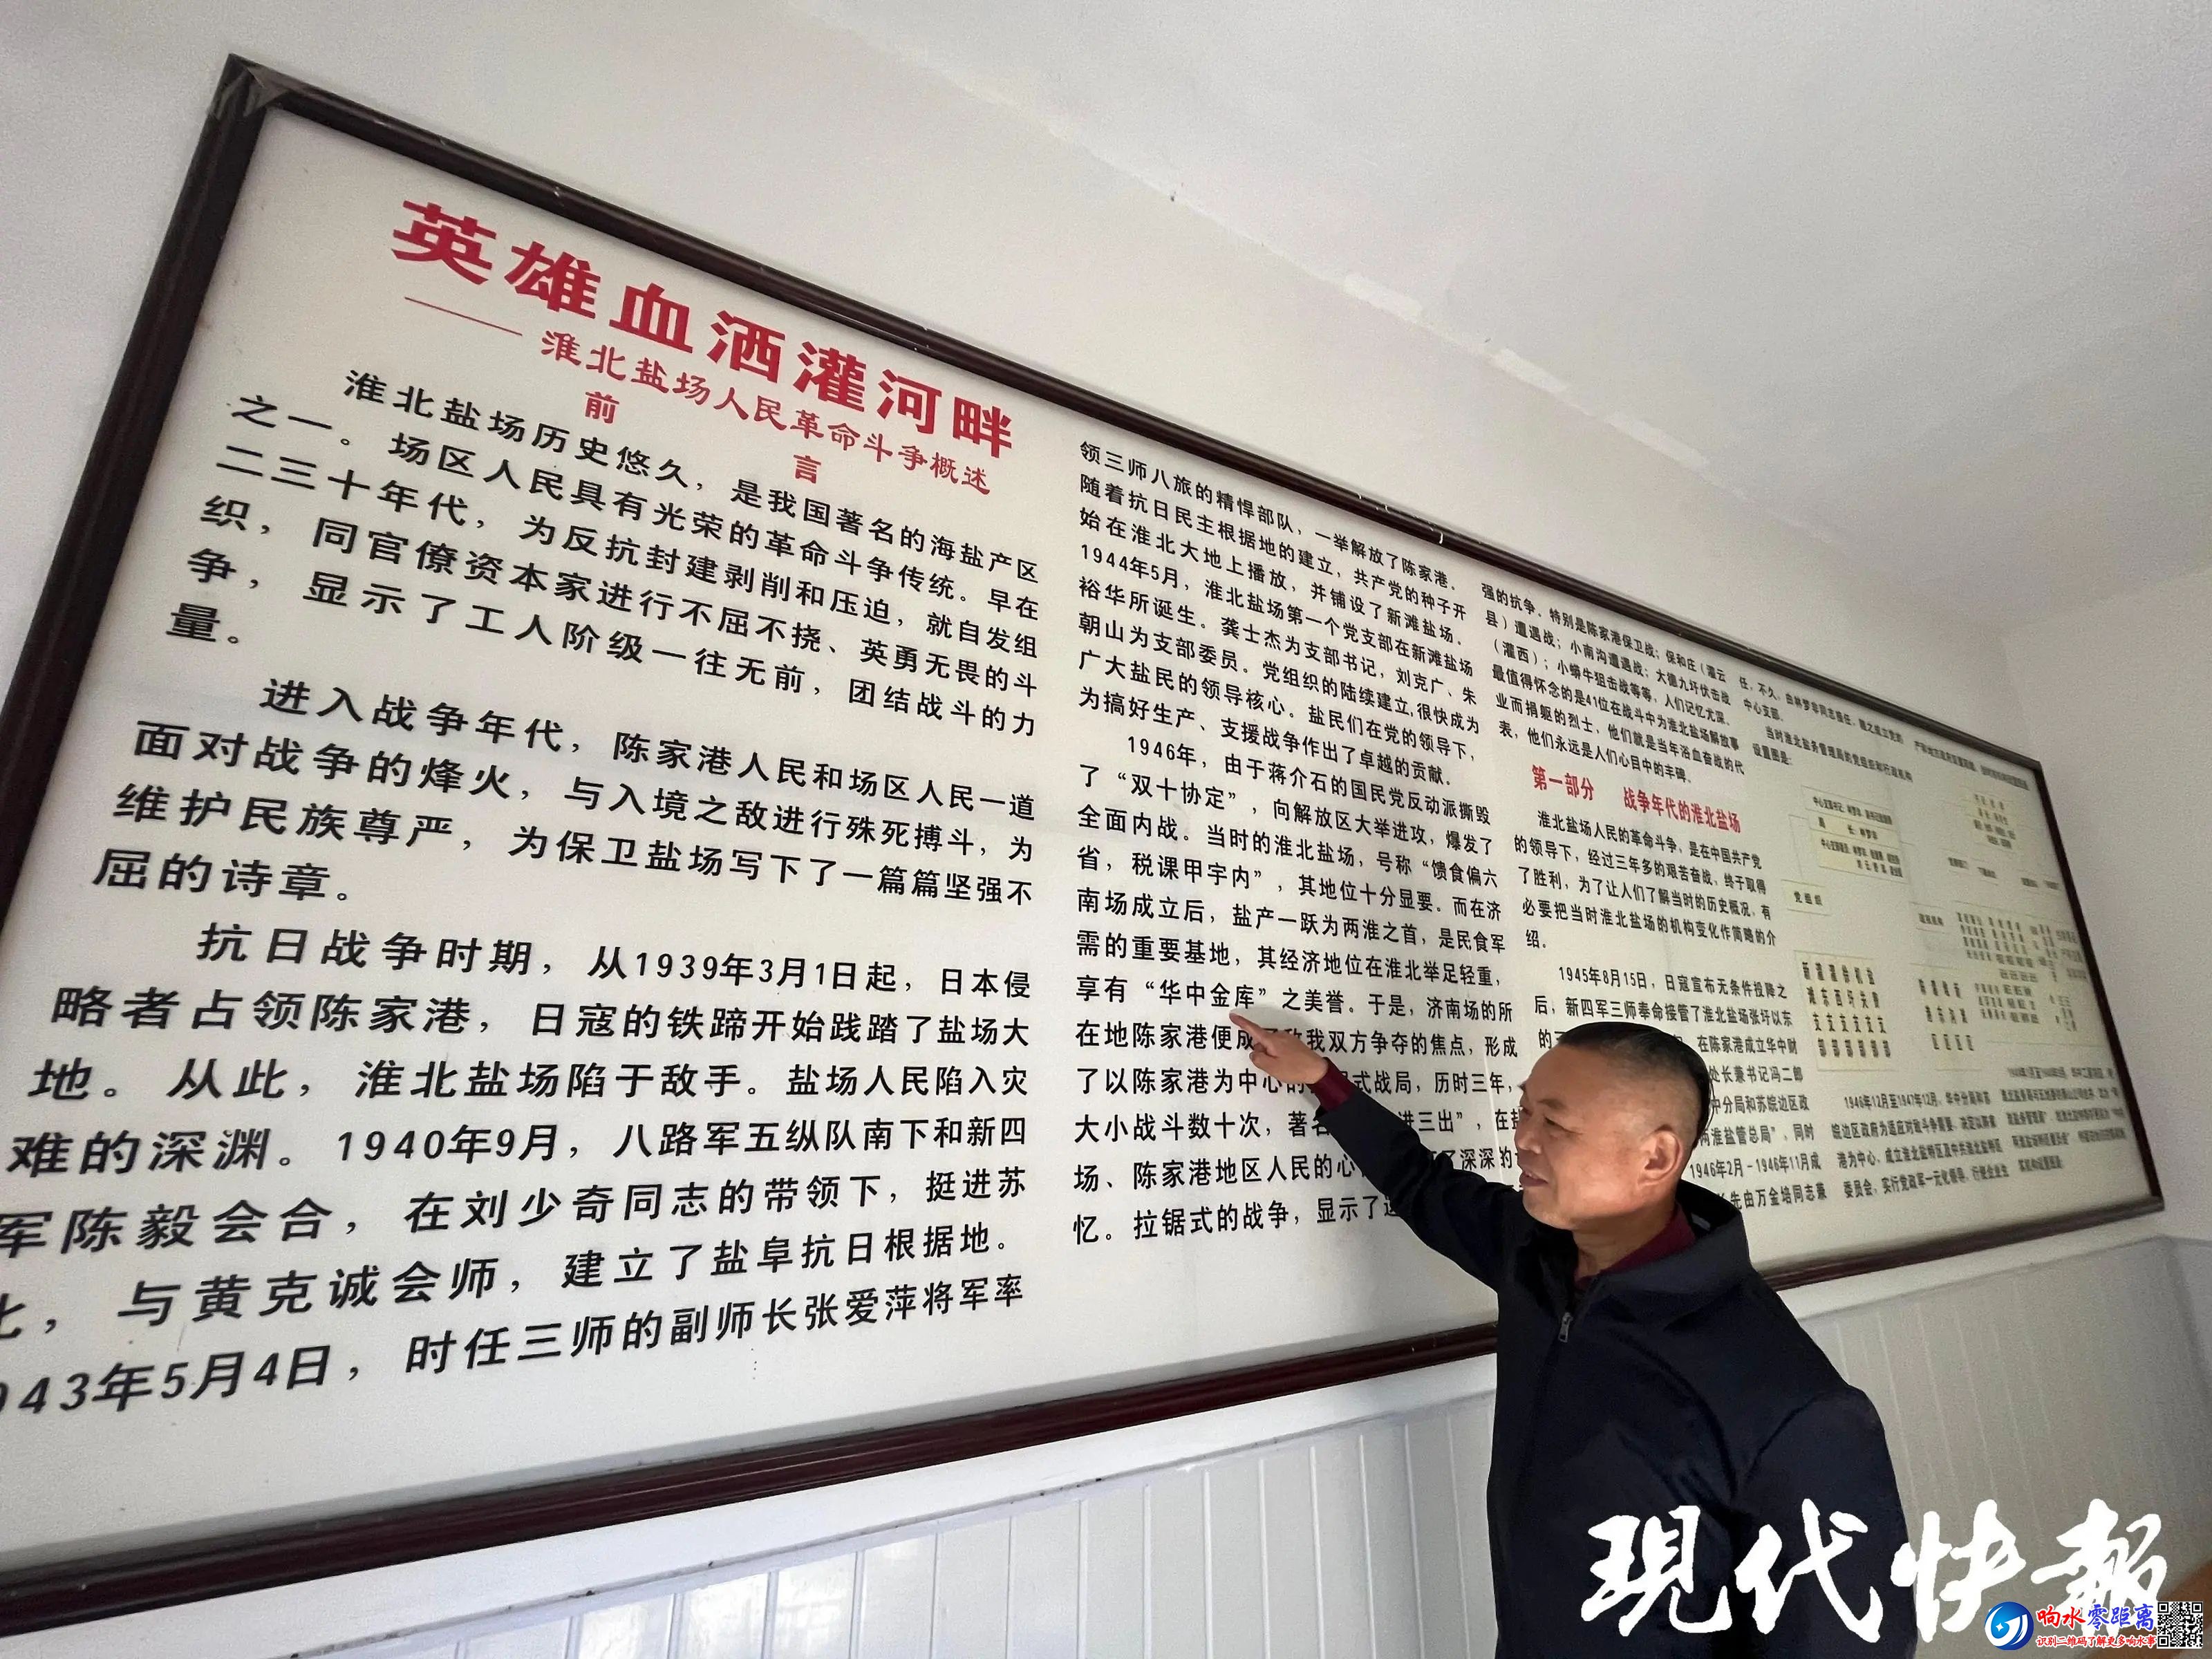 英雄血洒灌河畔
——淮北盐场人民革命斗争概述
前言
淮北盐场历史悠久，是我国著名的海盐产区
之一。场区人民具有光荣的革命斗争传统。早在
二三十年代，为反抗封建剥削和压迫，就自发组
织，同官僚资本家进行不屈不挠、英勇无畏的斗
争，显示了工人阶级一往无前，团结战斗的力
量。
进入战争年代，陈家港人民和场区人民一道
面对战争的烽火，与入境之敌进行殊死搏斗，为
维护民族尊严，为保卫盐场写下了一篇篇坚强不
屈的诗章。
抗日战争时期，从1939年3月1日起，日本侵
略者占领陈家港，日寇的铁蹄开始践踏了盐场大
地。从此，淮北盐场陷于敌手。盐场人民陷入灾
难的深渊。1940年9月，八路军五纵队南下和新四
军陈毅会合，在刘少奇同志的带领下，挺进苏
，与黄克诚会师，建立了盐阜抗日根据地。
943年5月4日，时任三师的副师长张爱萍将军率
领三师八旅的精悍部队，一举解放了陈家港。
随着抗日民主根据地的建立，共产党的种子开
始在淮北大地上播放，并铺设了新滩盐场。
1944年5月，淮北盐场第一个党支部在新滩盐场
裕华所诞生。龚士杰为支部书记，刘克广、朱
朝山为支部委员。党组织的陆续建立，很快成为
广大盐民的领导核心。盐民们在党的领导下，
为搞好生产、支援战争作出了卓越的贡献。
1946年，由于蒋介石的国民党反动派撕毁
了“双十协定”，向解放区大举进攻，爆发了
全面内战。当时的淮北盐场，号称“馈食偏六
省，税课甲宇内”，其地位十分显要。而在济
南场成立后，盐产一跃为两淮之首，是民食军
需的重要基地，其经济地位在淮北举足轻重，
享有“华中金库”之美誉。于是，济南场的所
在地陈家港便成了敌我双方争夺的焦点，形成
了以陈家港为中心的 式战局，历时三年，
大小战斗数十次，著名 进三出”，在盐
场、陈家港地区人民的心 了深深的
忆。拉锯式的战争，显示了
强的抗争。特别是陈家港保卫战；保和庄（灌云
县）遭遇战；小南沟遭遇战；大德九圩伏击战
（灌西）；小蟒牛狙击战等等，人们记忆尤深。
最值得怀念的是41位在战斗中为淮北盐场解放事
业而捐躯的烈士，他们就是当年浴血奋战的代
表，他们永远是人们心目中的丰碑。
第一部分 战争年代的淮北盐场
淮北盐场人民的革命斗争，是在中国共产党
的领导下，经过三年多的艰苦奋战，终于取得
了胜利，为了让人们了解当时的历史概况，有
必要把当时淮北盐场的机构变化作简略的介
绍。
1945年8月15日，日寇宣布无条件投降之
后，新四军三师奉命接管了淮北盐场张圩以东
的 在陈家港成立华中财
处长兼书记冯二郎
中分局和苏皖边区政
两淮盐管总局”，同时
1946年2月－1946年11月成
先由万金培同志兼
任，不久，由林梦非同志接任，随之成立党的
中心支部。
当时淮北盐务管理局的党组织和行政机构
设置图是：
党组织
1946年12月至1947年12月，华中分局和苏
皖边区政府为适应对敌斗争需要，决定以陈家
港为中心，成立淮北盐特区及中共淮北盐特区
委员会，实行党政军一元化领导，行使企业生
現代快報
响水零距离
识别二维码了解更多响水事